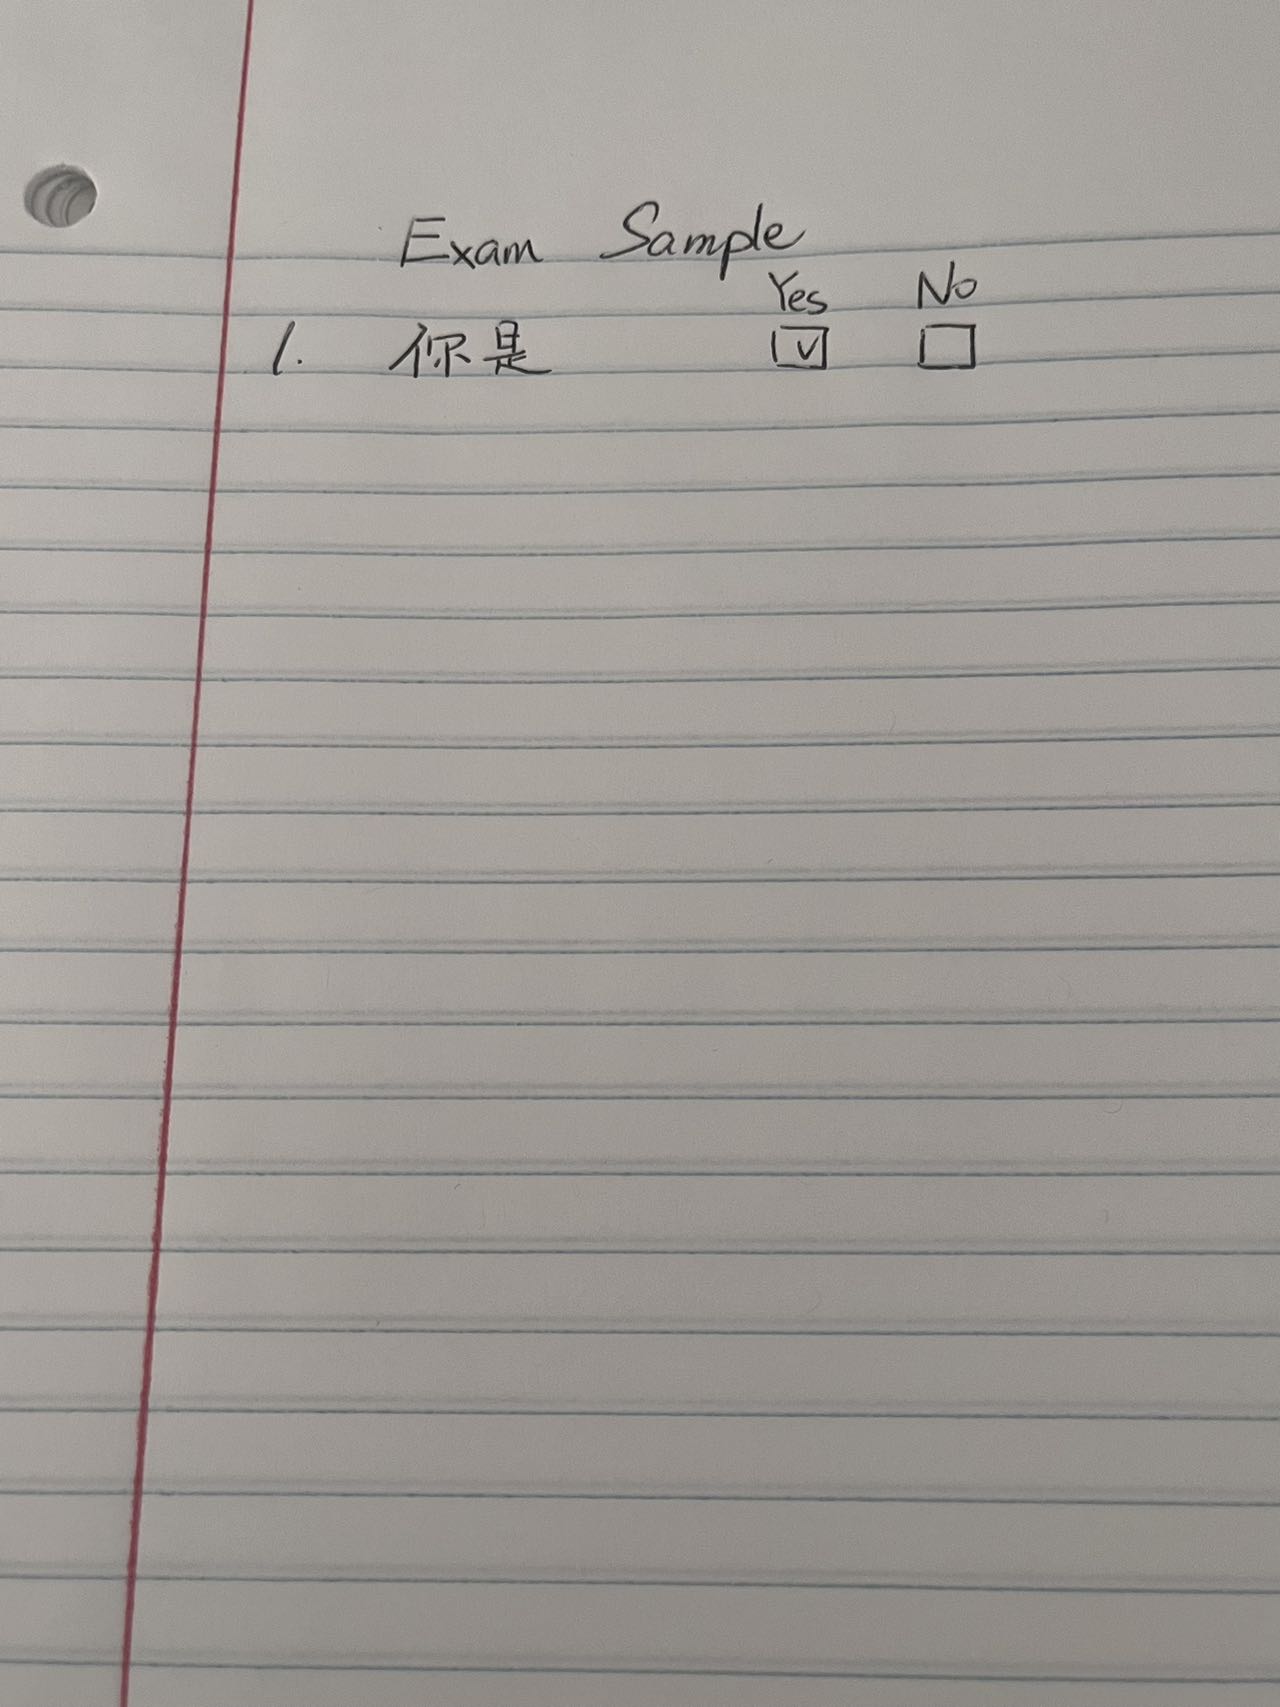 Exam Sample
Yes No
1. 你是 ☑ ☐